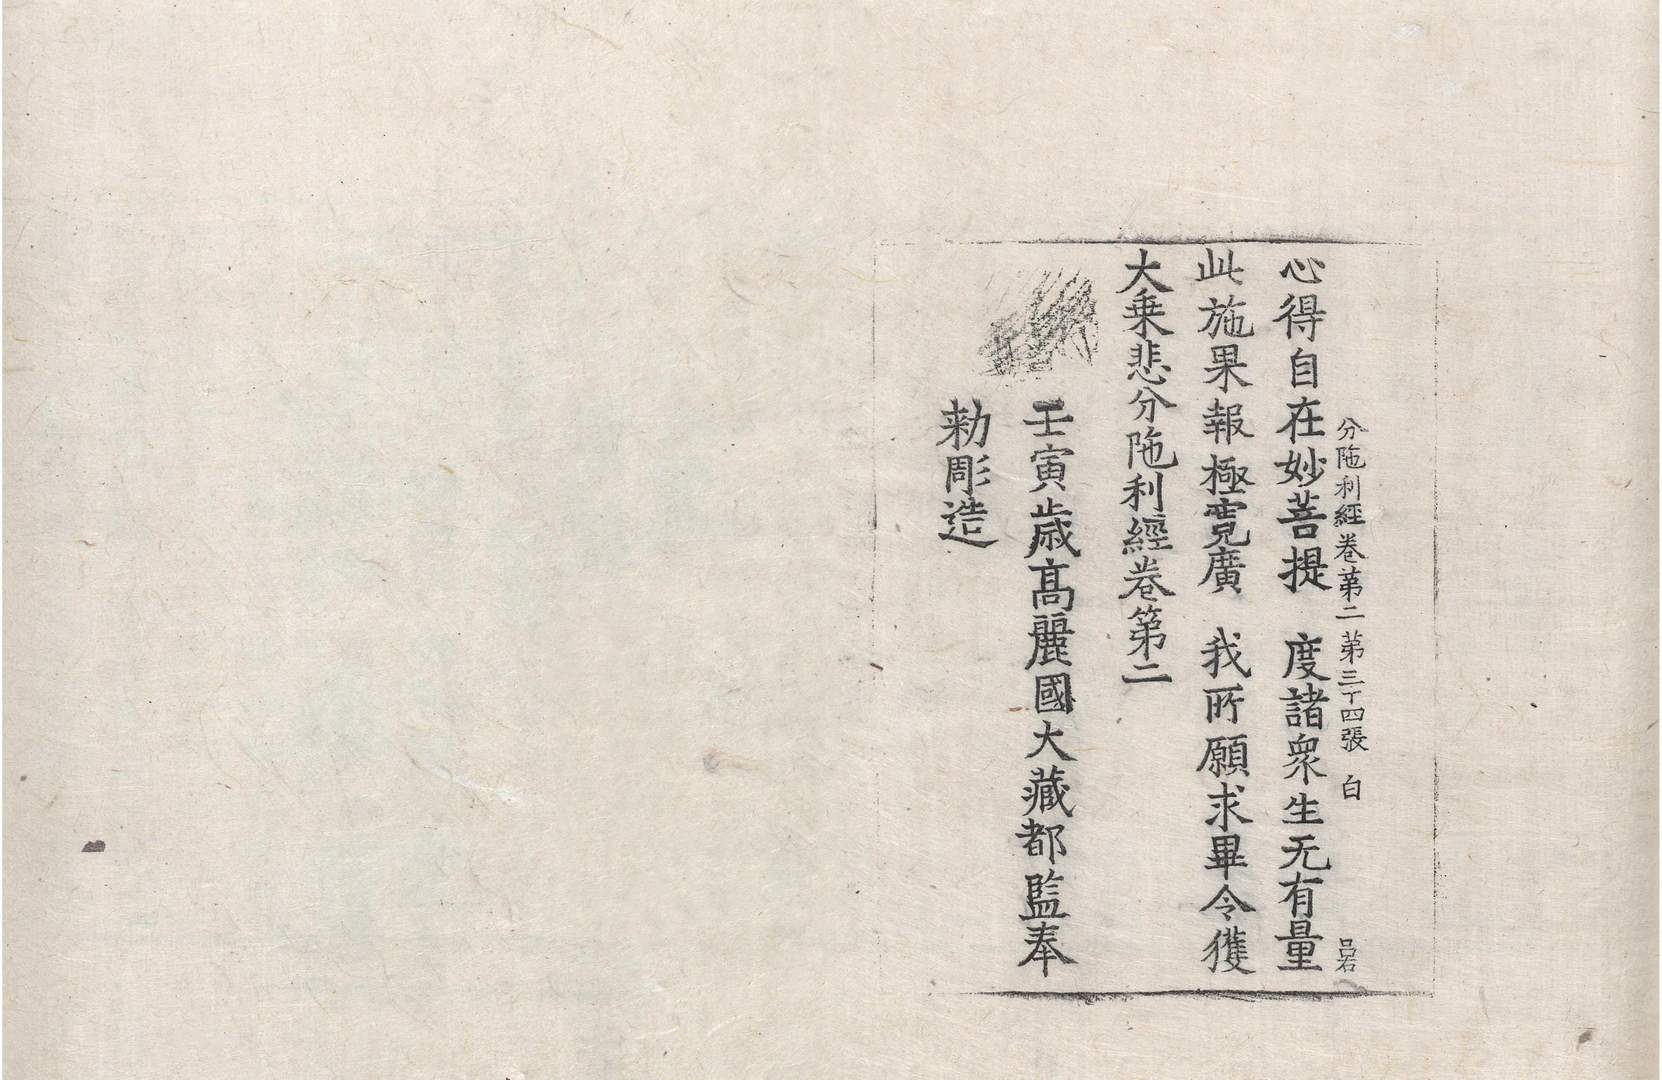 分陁利經卷第二 第三十四張 白 呂石
心得自在妙菩提 度諸衆生无有量
此施果報極寬廣 我所願求畢令獲
大乗悲分陁利經卷第二
壬寅歳髙麗國大藏都監奉
勑彫造